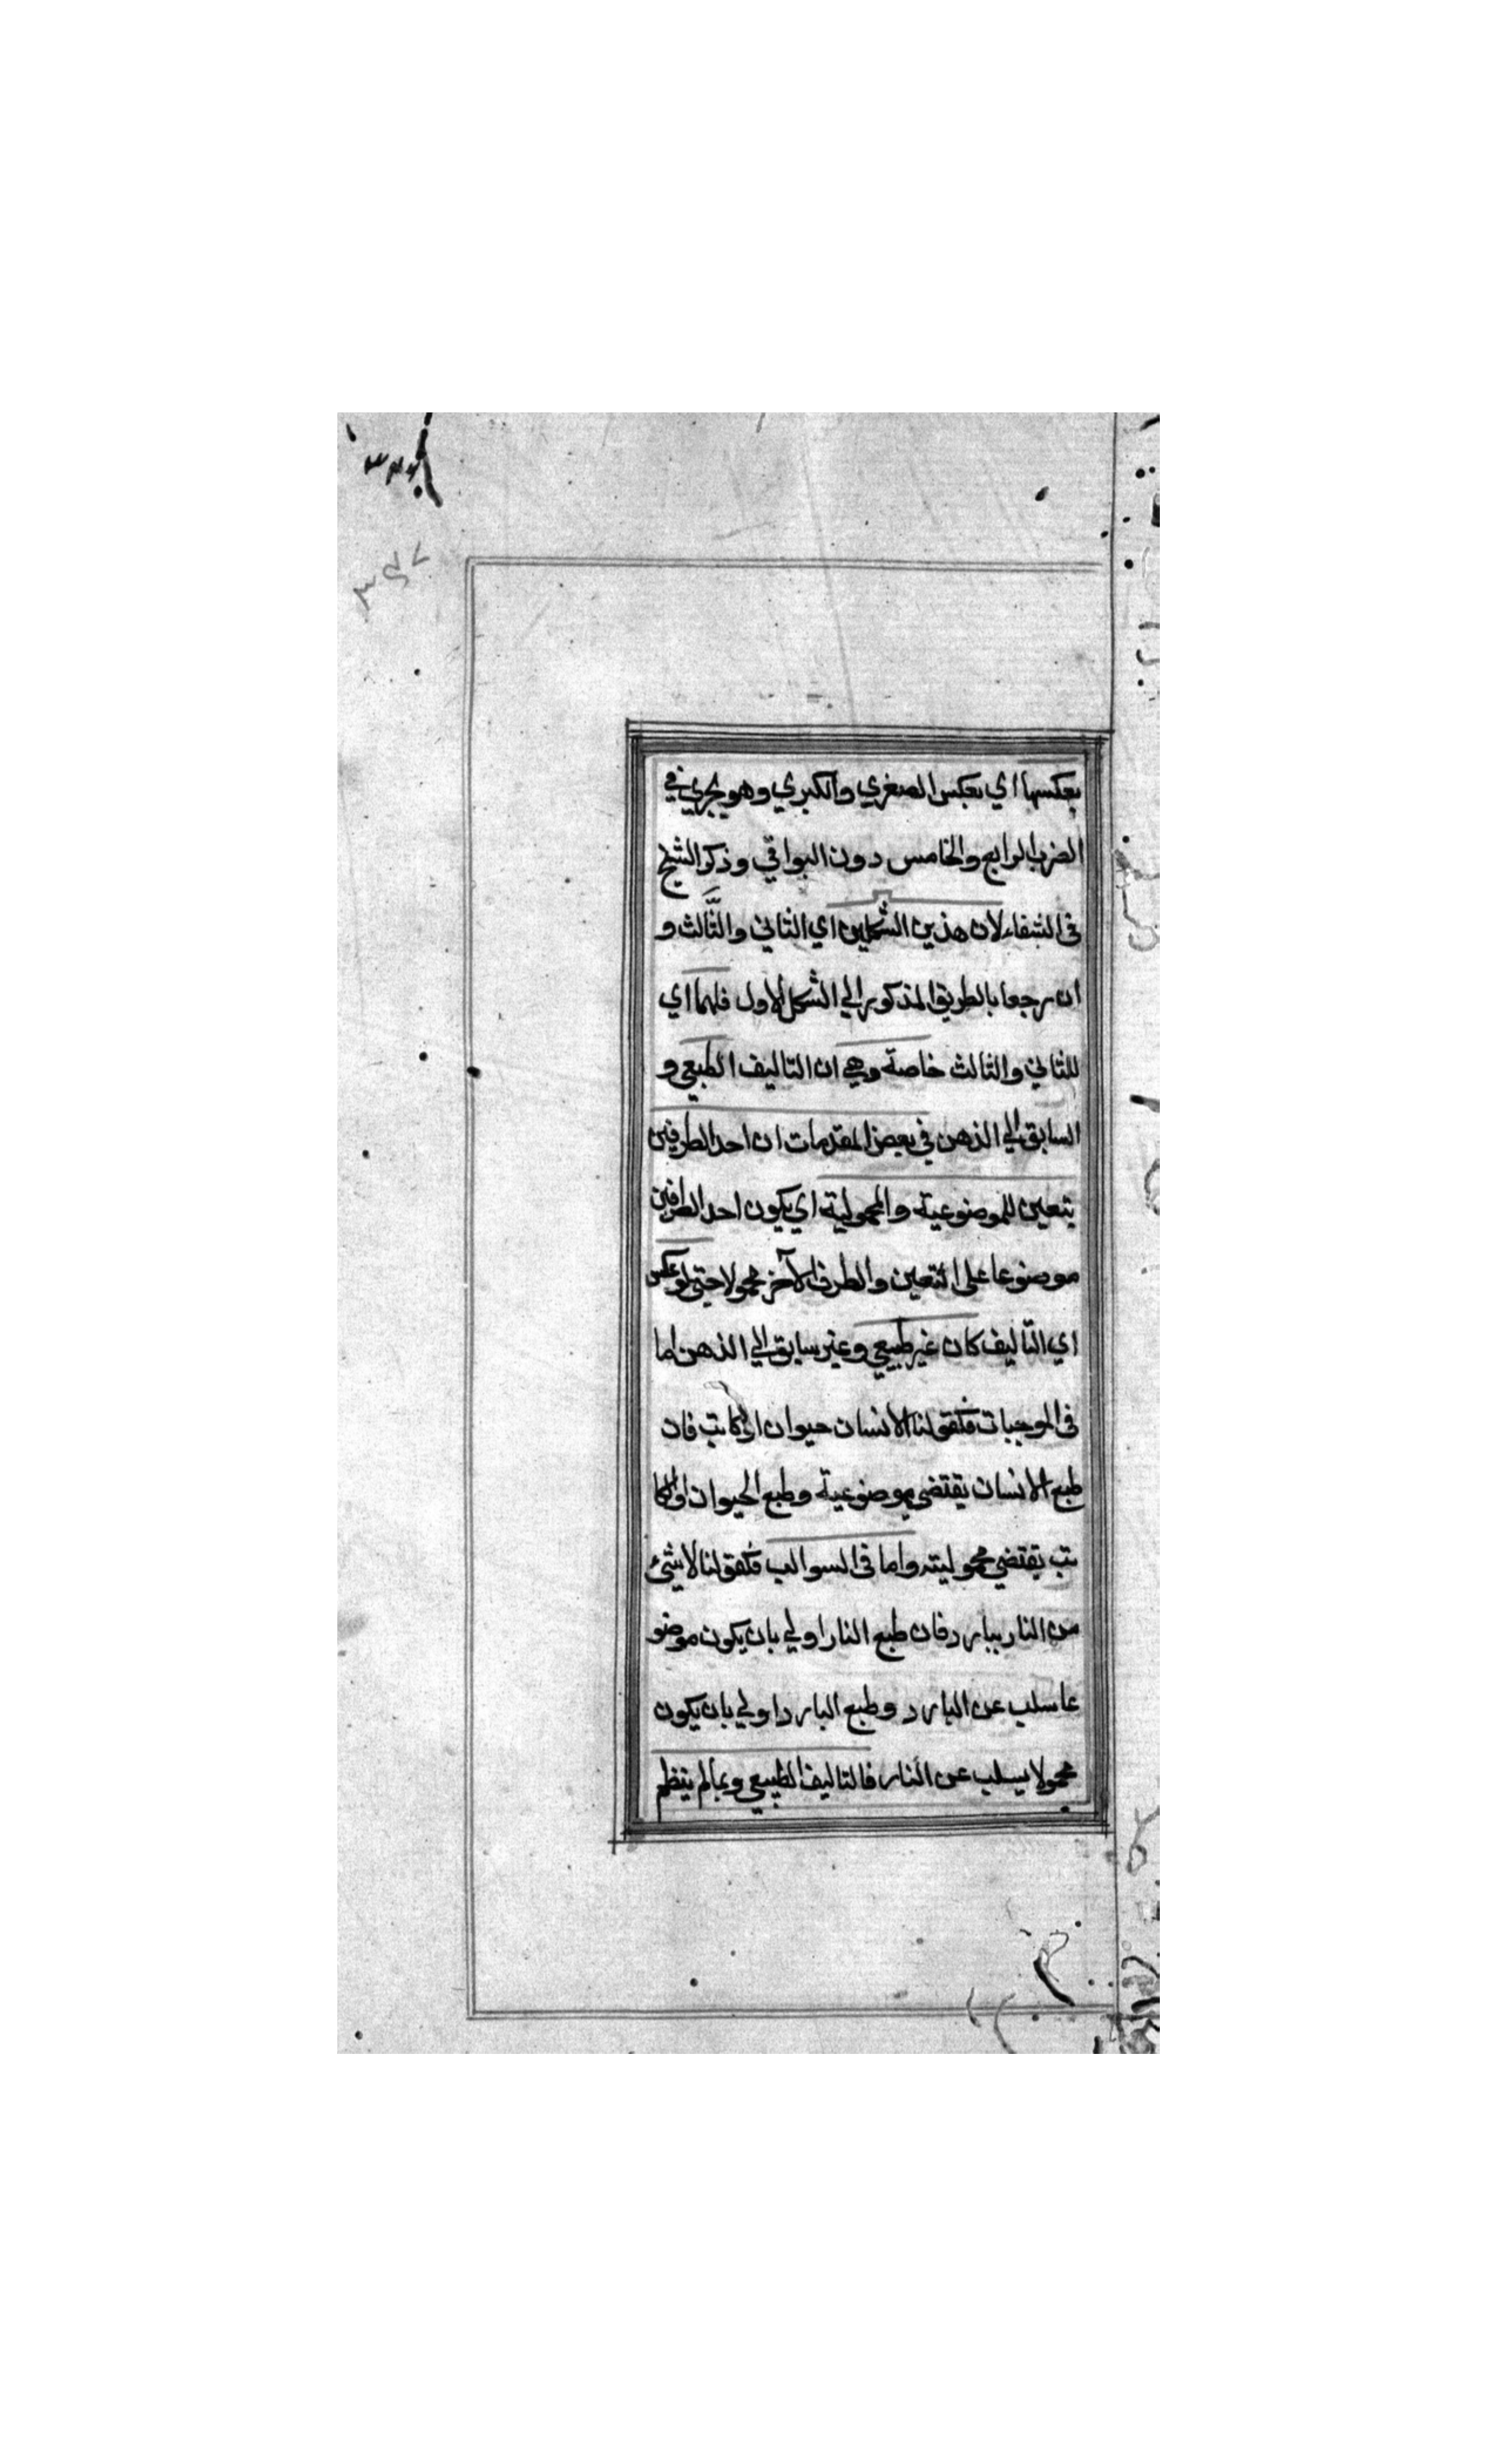 ٣٤٧
بعكسها اي بعكس الصغري والكبري وهو يجري في
الضرب الرابع والخامس دون البواقي وذكر الشيخ
فى الشفاء لان هذين الشكلين اي الثاني والثالث و
ان رجعا بالطريق المذكور الي الشكل الاول فلهما اي
للثاني والثالث خاصة وهي ان التاليف الطبعي و
السابق الي الذهن في بعض المقدمات ان احد الطرفين
يتعين للموضوعية والمحمولية اي يكون احد الطرفين
موضوعا علي التعين والطرف الآخر محمولا حتي لو عكس
اي التّاليف كان غير طبيعي وغير سابق الي الذهن اما
فى الموجبات فكقولنا الانسان حيوان او كاتب فان
طبع الانسان يقتضي موضوعية وطبع الحيوان او الكا
تب يقتضي محموليته واما فى السوالب فكقولنا لا شئ
من النار ببارد فان طبع النار اولي بان يكون موضو
عا سلب عن البارد وطبع البارد اولي بان يكون
محمولا يسلب عن النار فالتاليف الطبيعي وبمالم ينظم